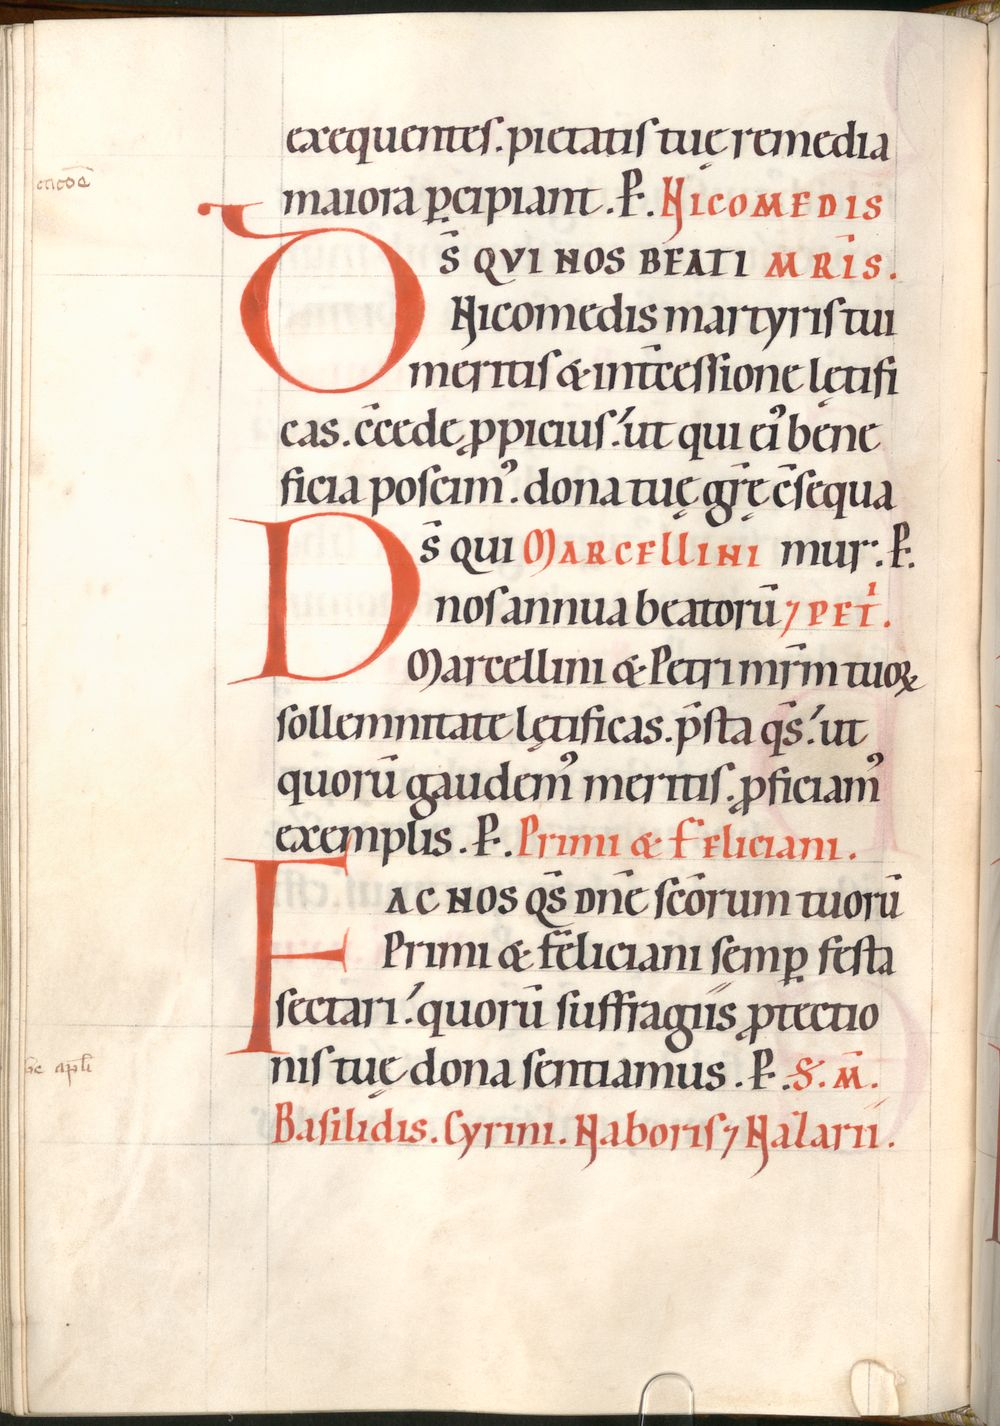 exequentes. pietatis tuę remedia
maiora ꝑcipiant. P̶. NICOMEDIS
DS̄ QVI NOS BEATI MR̄IS.
Nicomedis martyris tui
meritis & int̄cessione lętifi
cas. c̄cede ꝓpicius. ut qui eiꝰ bene
ficia poscimꝰ. dona tuę gr̄ę c̄sequa
mur. P̶. MARCELLINI
DS̄ QUI
nos annua beatorū ⁊ PETI.
Marcellini & Petri mr̄m tuoꝝ
sollemnitate lętificas. p̄sta q̄s. ut
quorū gaudemꝰ meritis. ꝓficiamꝰ
exemplis. P̶. Primi & Feliciani.
FAC NOS QS̄ DN̄E sc̄orum tuorū
Primi & Feliciani semꝑ festa
sectari. quorū suffragiis ꝓtectio
nis tuę dona sentiamus. P̶. S. M̄.
Basilidis. Cyrini. Naboris ⁊ Nazarii.